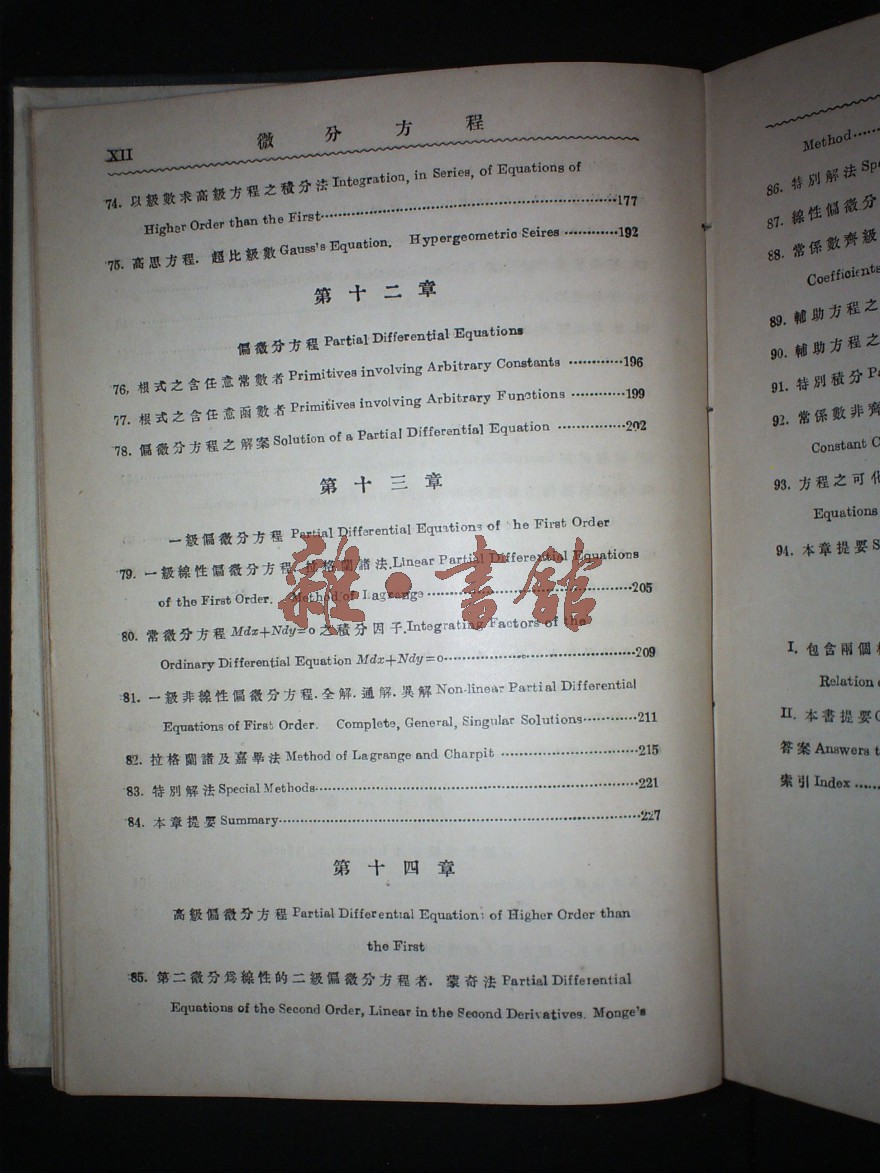 XII
微分方程
74. 以級數求高級方程之積分法 Integration, in Series, of Equations of
Higher Order than the First……177
75. 高思方程. 超比級數 Gauss's Equation. Hypergeometric Seires……192
第十二章
偏微分方程 Partial Differential Equations
76. 根式之含任意常數者 Primitives involving Arbitrary Constants……196
77. 根式之含任意函數者 Primitives involving Arbitrary Functions……199
78. 偏微分方程之解案 Solution of a Partial Differential Equation……202
第十三章
一級偏微分方程 Partial Differential Equations of he First Order
79. 一級線性偏微分方程. 拉格蘭諸法. Linear Partial Differential Equations
of the First Order. Method of Lagrange……205
80. 常微分方程 Mdx+Ndy=o 之積分因子. Integrating Factors of the
Ordinary Differential Equation Mdx+Ndy=o……209
81. 一級非線性偏微分方程. 全解. 通解. 異解 Non-linear Partial Differential
Equations of First Order. Complete, General, Singular Solutions……211
82. 拉格蘭諸及嘉畢法 Method of Lagrange and Charpit……215
83. 特別解法 Special Methods……221
84. 本章提要 Summary……227
第十四章
高級偏微分方程 Partial Differential Equation: of Higher Order than
the First
85. 第二微分爲線性的二級偏微分方程者. 蒙奇法 Partial Differential
Equations of the Second Order, Linear in the Second Derivatives. Monge's
雜·書館
Method……
86. 特別解法 Spe
87. 線性偏微分
88. 常係數齊級
Coefficients
89. 輔助方程之
90. 輔助方程之
91. 特別積分 Pa
92. 常係數非齊
Constant C
93. 方程之可化
Equations
94. 本章提要 S
I. 包含兩個
Relation
II. 本書提要
答案 Answers t
索引 Index……